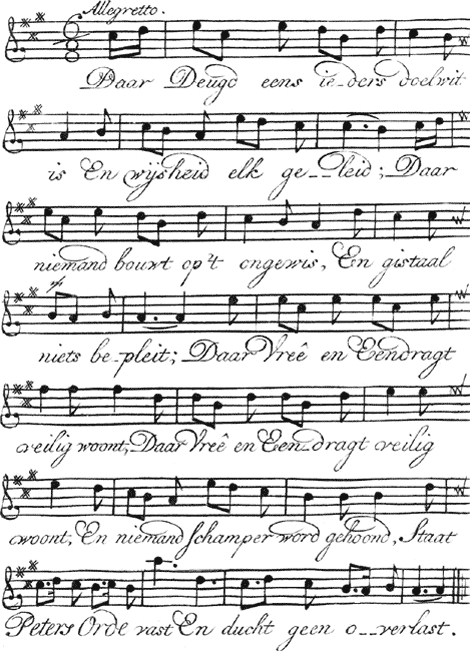 Allegretto.
Daar Deugd eens ie-ders doelwit
is En wijsheid elk ge--leid; Daar
niemand bouwt op 't ongewis, En gistaal
niets be-pleit; Daar Vreê en Eendragt
veilig woont, Daar Vreê en Een-dragt veilig
woont, En niemand schamper word gehoond, Staat
Peters Orde vast En ducht geen o--verlast.